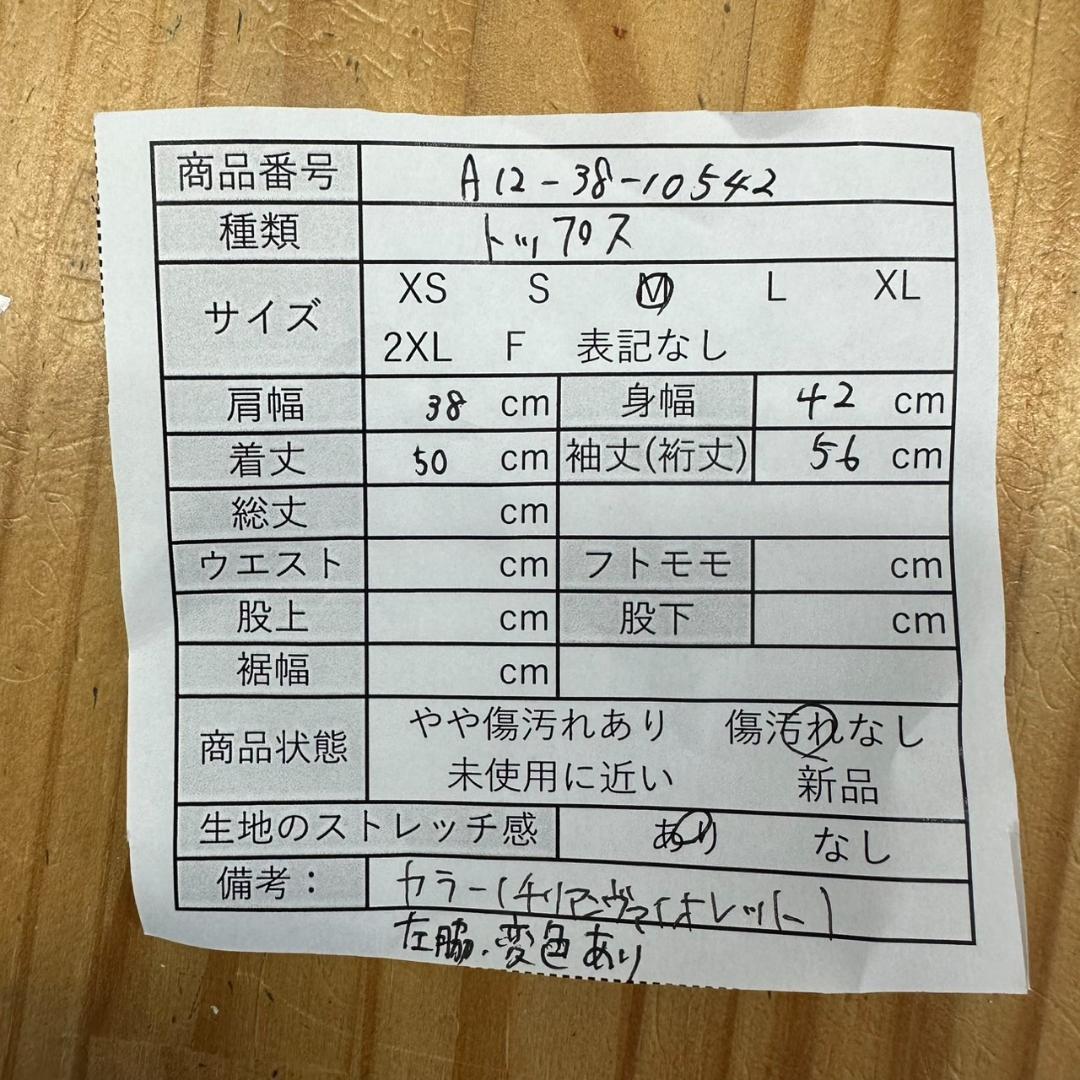 商品番号 A12-38-10542
種類 トップス
サイズ XS S M L XL
2XL F 表記なし
肩幅 38 cm 身幅 42 cm
着丈 50 cm 袖丈(裄丈) 56 cm
総丈 cm
ウエスト cm フトモモ cm
股上 cm 股下 cm
裾幅 cm
商品状態 やや傷汚れあり 傷汚れなし
未使用に近い 新品
生地のストレッチ感 あり なし
備考: カラー(チリアンヴァイオレット)
左脇.変色あり